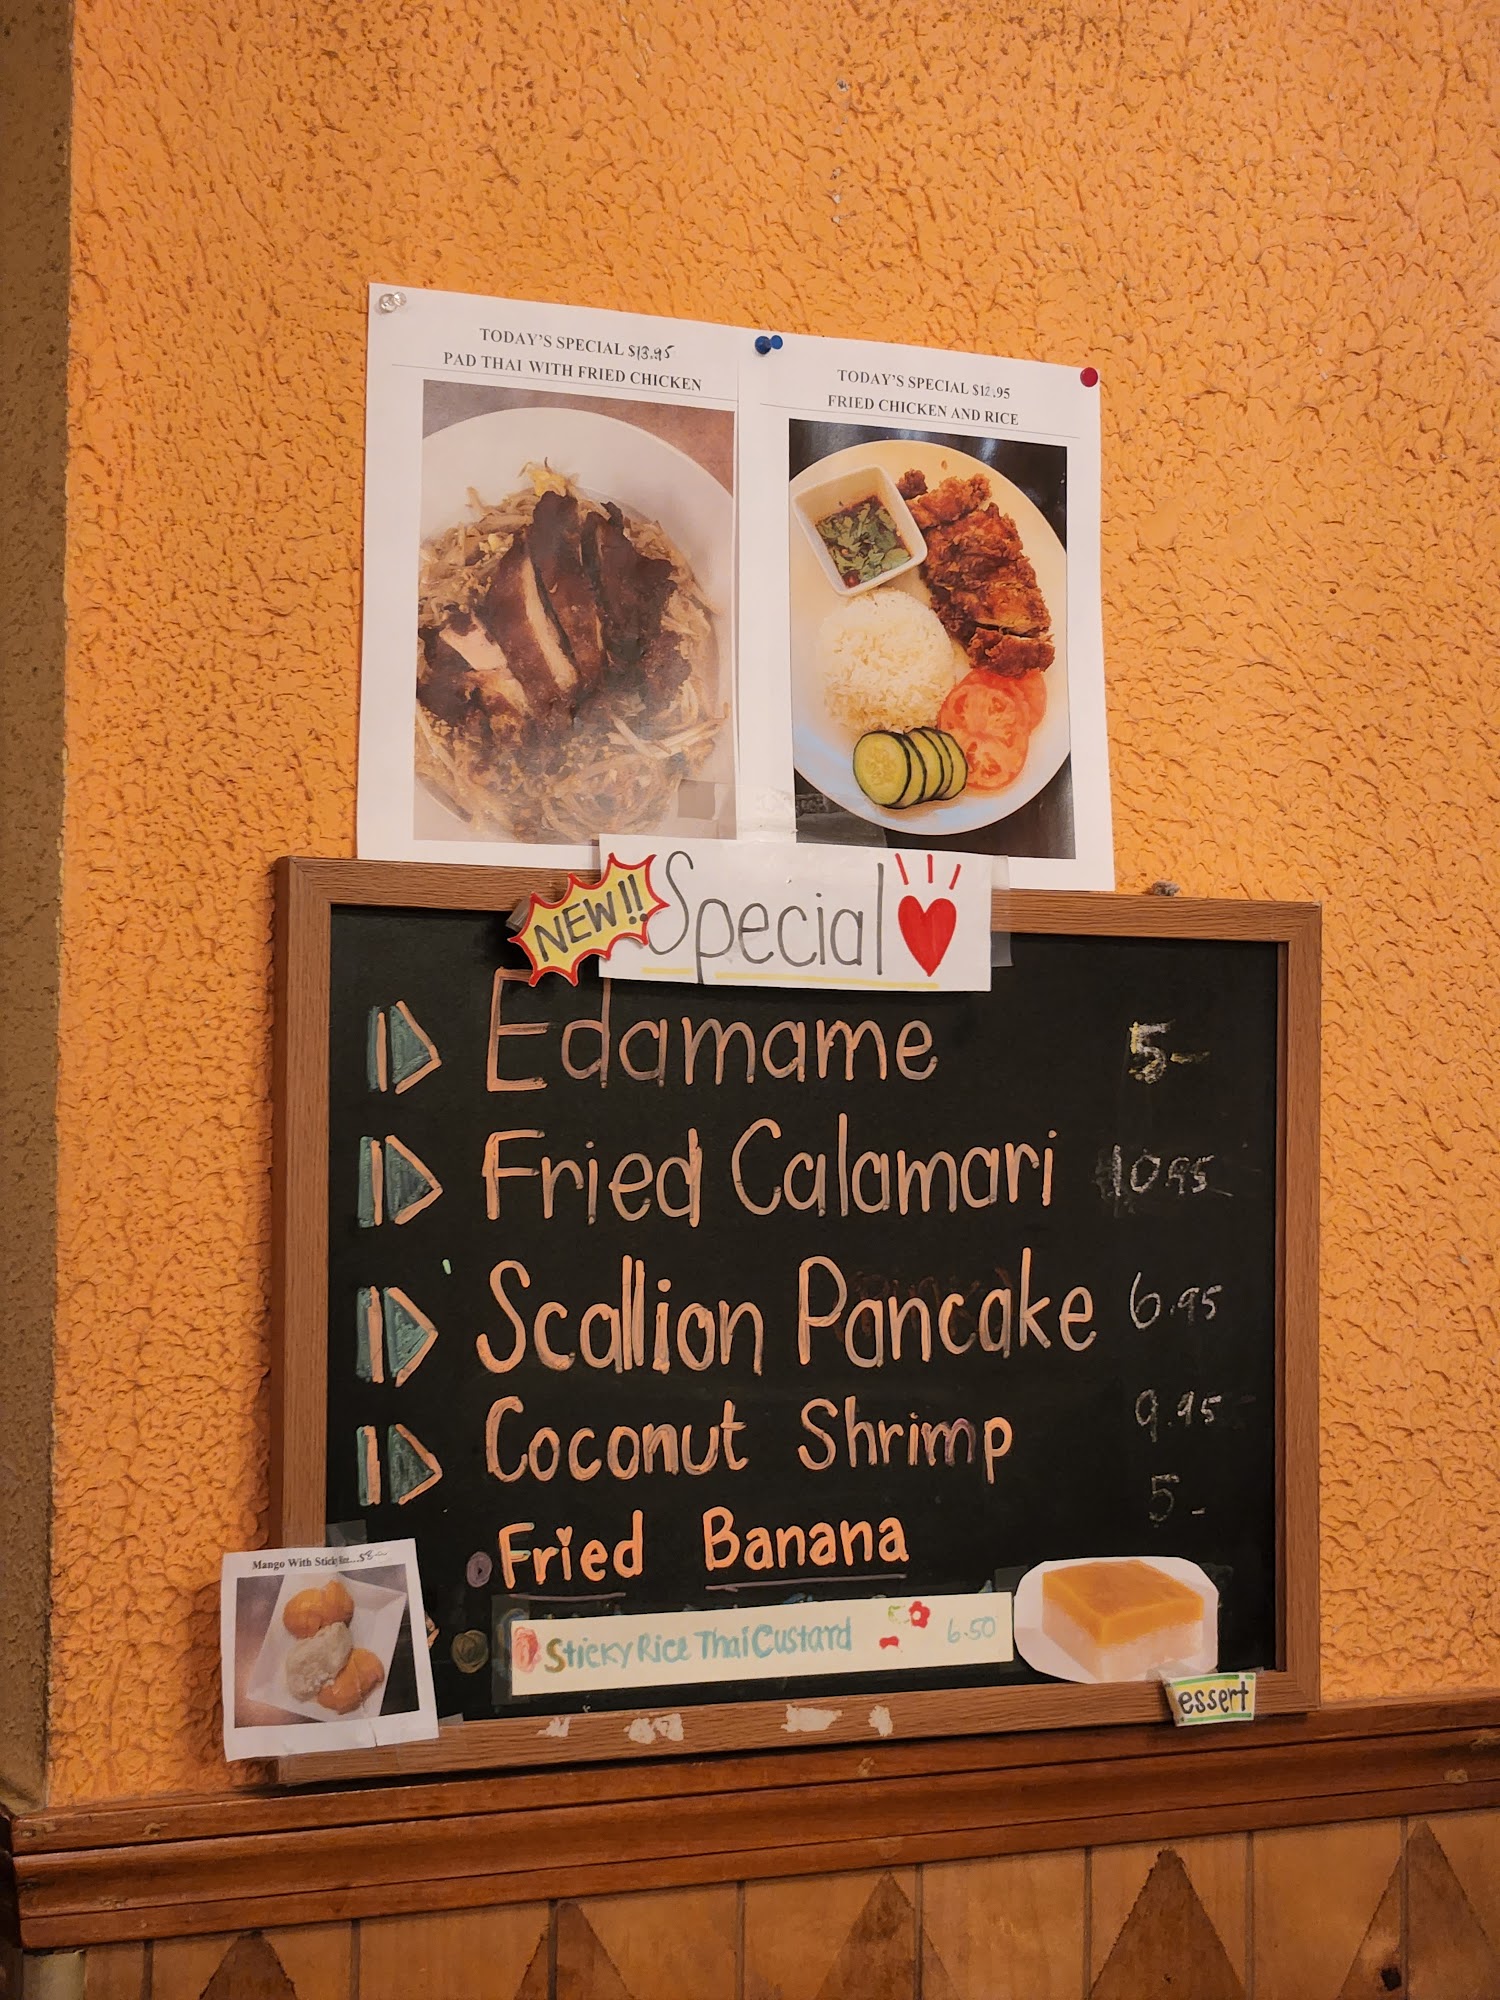 TODAY'S SPECIAL $13.95
PAD THAI WITH FRIED CHICKEN
TODAY'S SPECIAL $12.95
FRIED CHICKEN AND RICE
NEW!! Special
Edamame 5-
Fried Calamari 10.95
Scallion Pancake 6.95
Coconut Shrimp 9.95
Fried Banana 5-
Mango With Sticky Rice...$8
Sticky Rice Thai Custard 6.50
essert